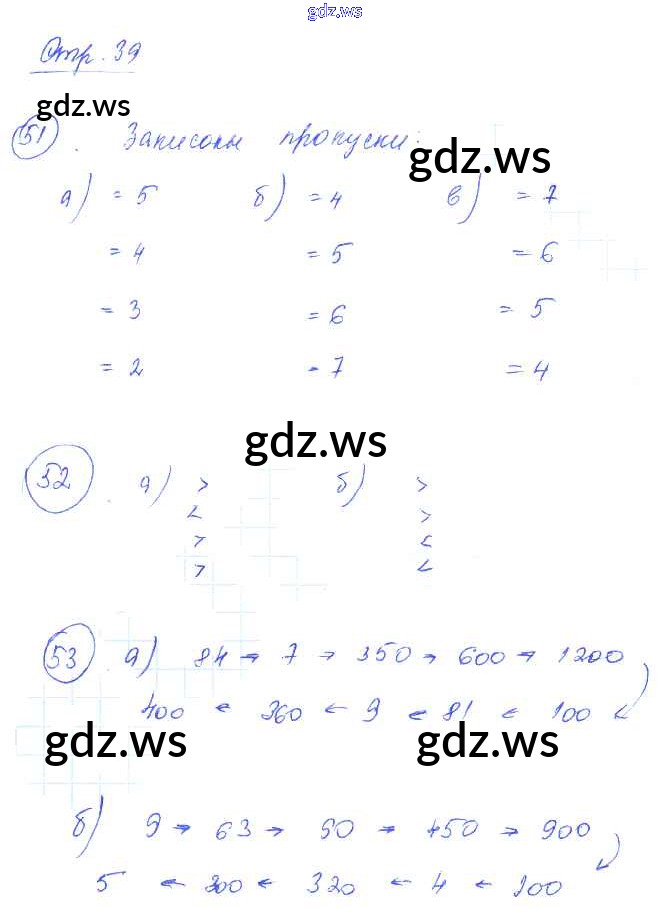 gdz.ws
Стр. 39
gdz.ws
51. Записаны пропуски:
gdz.ws
а) = 5 б) = 4 в) = 7
= 4 = 5 = 6
= 3 = 6 = 5
= 2 - 7 = 4
gdz.ws
52. а) > б) >
< >
> <
> <
53. а) 84 → 7 → 350 → 600 → 1200
400 ← 360 ← 9 ← 81 ← 100 ↙
gdz.ws gdz.ws
б) 9 → 63 → 90 → 450 → 900
5 ← 300 ← 320 ← 4 ← 100 ↙